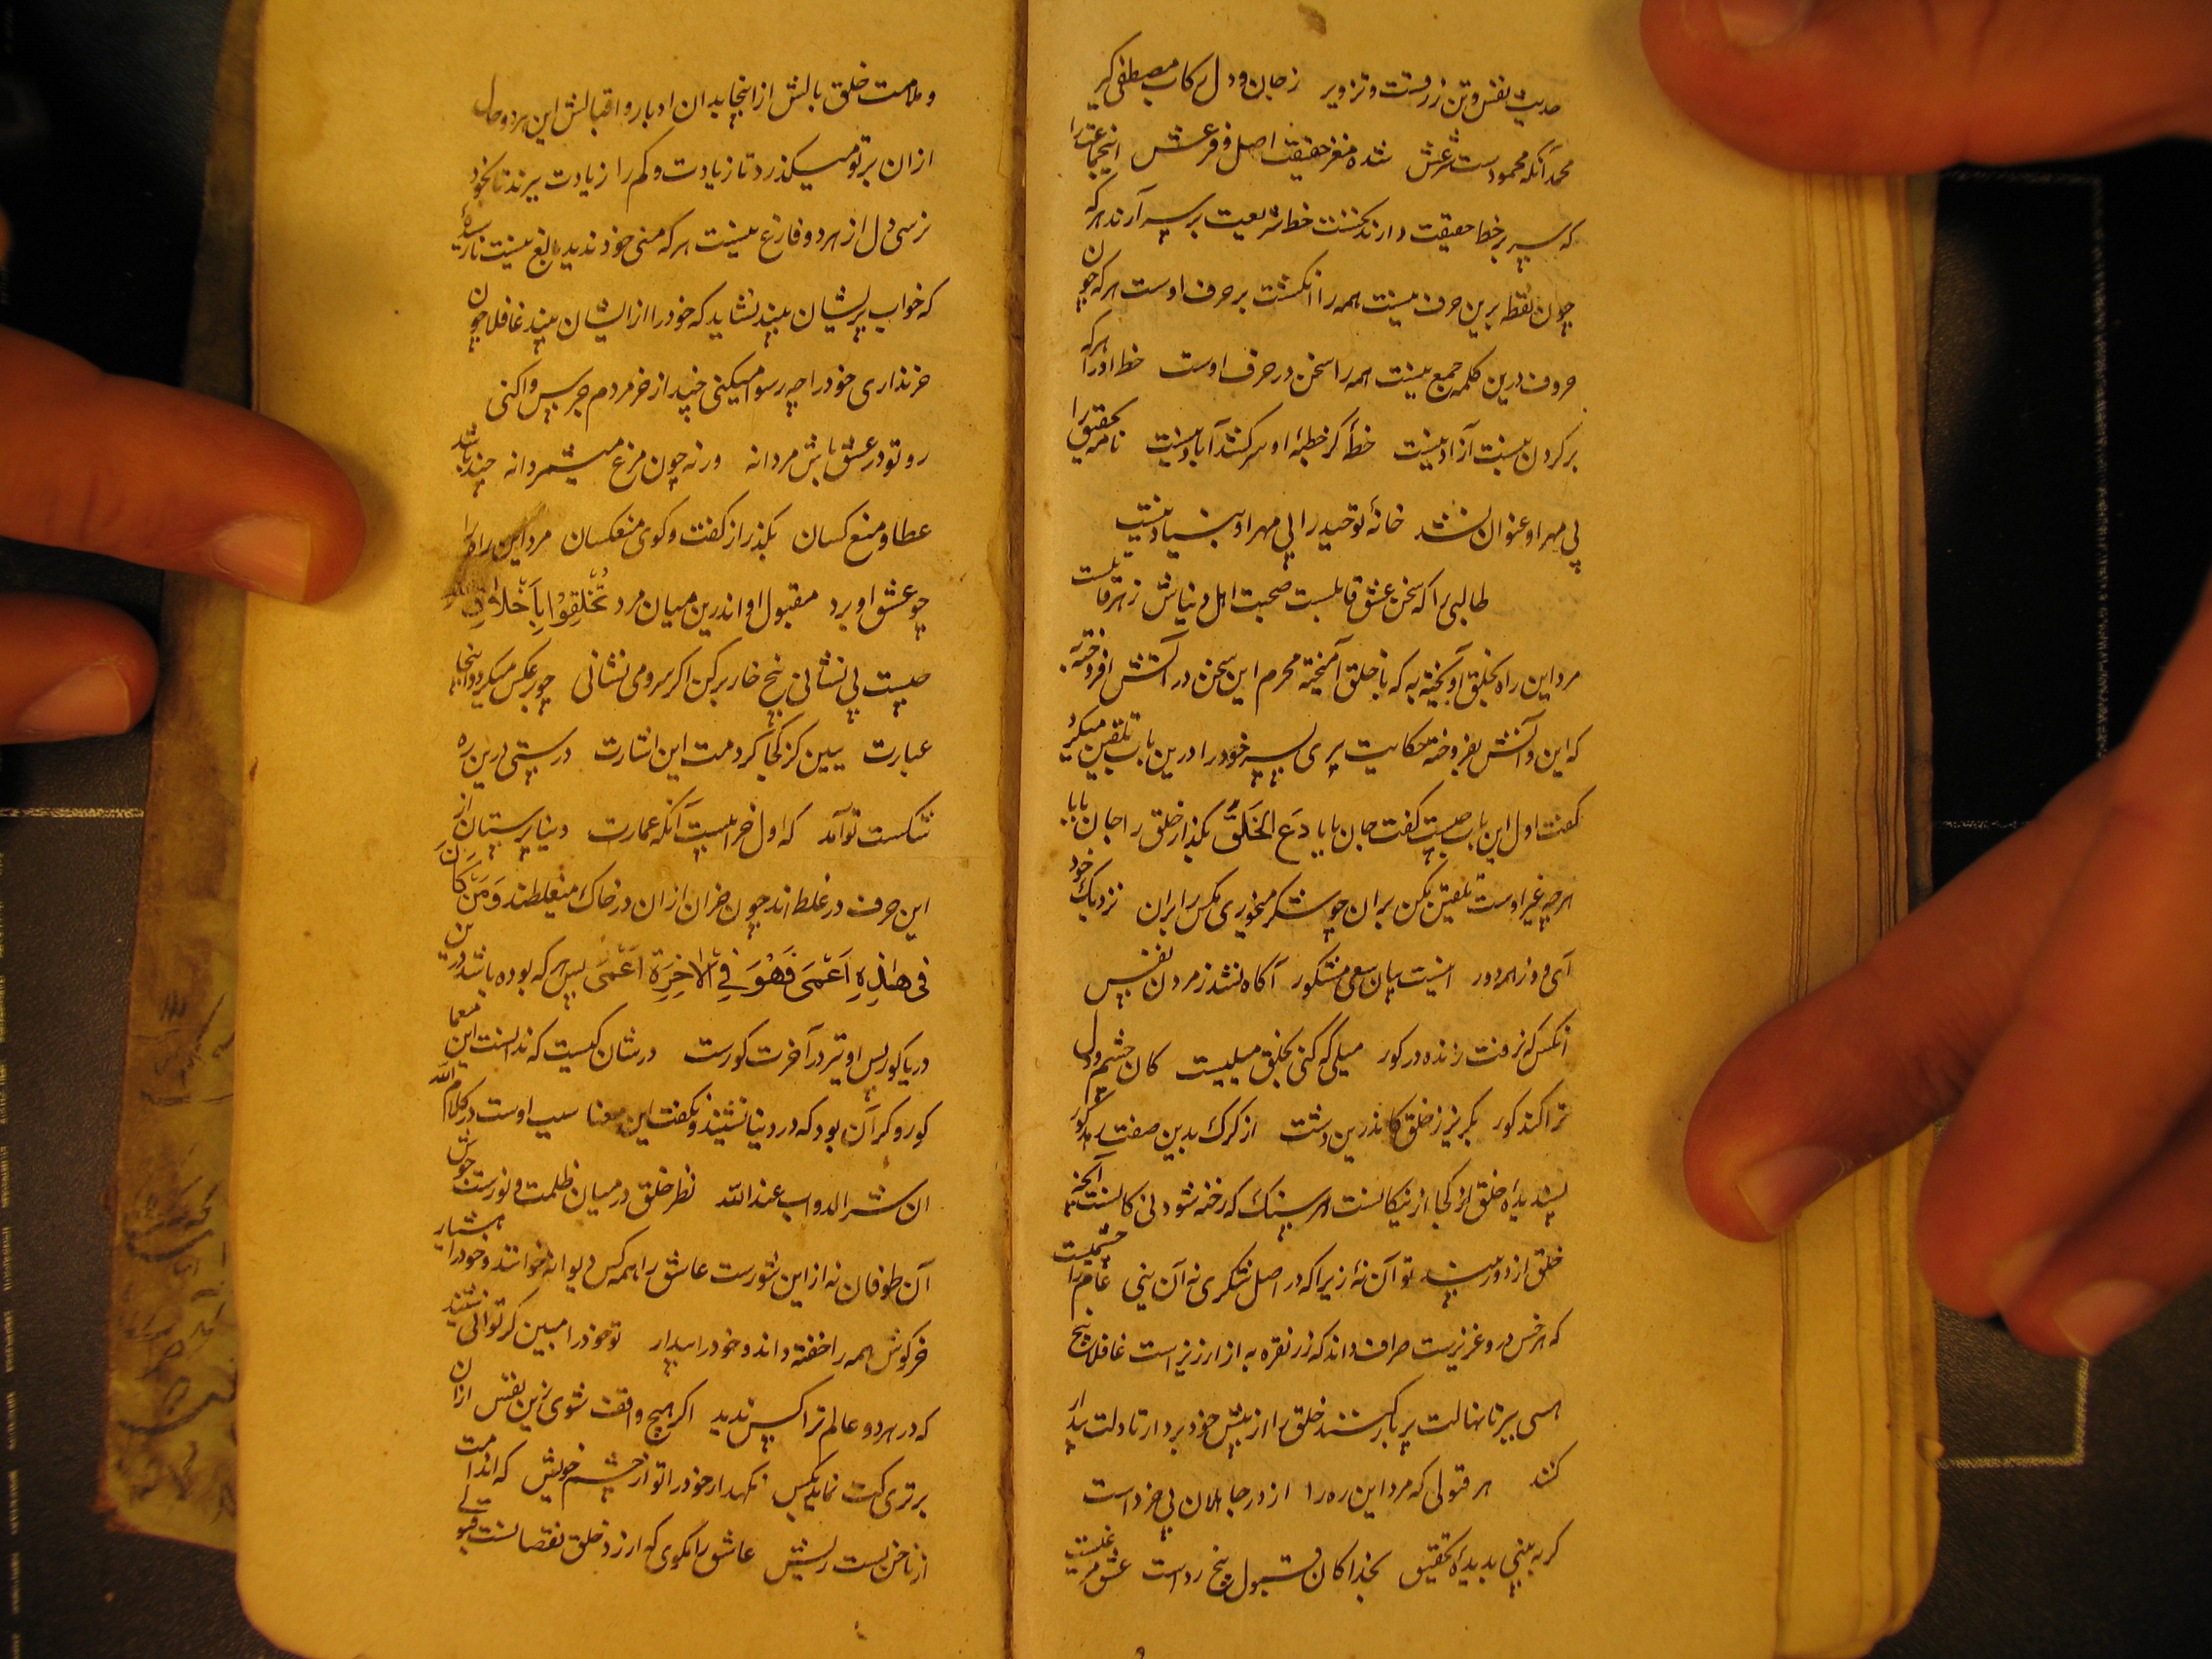 حدیث نفس و تن زرقست و تزویر ز جان و دل رکاب مصطفی گیر
محمد آنکه محمودست شرعش شده مغز حقیقت اصل و فرعش
که سر بر خط حقیقت دارند نخست خط شریعت بر سر آرند هر که
چون نقطه برین حرف نیست همه را انگشت بر حرف اوست هر که چون
حروف درین کلمه جمع نیست همه را سخن در حرف اوست خط او را هر که
بر کردن نیست آزاد نیست خط کر خطبهٔ او سر کنند آباد نیست نامه تحقیق را
بی مهر او عنوان نشد خانهٔ توحید را بی مهر او بنیاد نیست
طالبی را که سخن عشق قابلست صحبت اهل دنیاش زهر قاتلست
مرد این راه بحلق آویخته به که با خلق آمیخته محرم این سخن در آتش افروخته به
که این در آتش بفروخته حکایت پیری پسر خود را درین باب تلقین میکرد
کفت اول این باب چیست کفت جان بابا دَع الخَلقَ بکذار خلق را جان بابا
هر چه غیر اوست تلقین بکن بران چو شکر میخوری مکس را بران نزدیک خود
آی و ز همه دور اینست بیان سعی مشکور آکاه نشد ز مردن نفس
آنکس که نرفت زنده در کور میلی که کنی بخلق میلیست کان چشم دل
ترا کند کور بکریز ز خلق کاندرین دشت از کرک بدین صفت رمد کور
پسندیدهٔ خلق از کجا از نیکانست هر سنک که رخنه شود نی کانست آنچه
خلق از دور بیند تو آن نهٔ زیرا که در اصل شکری نه آن نیی عام را چشمیست
که هر خس درو عزیزست صراف داند که زر نقره به از ارزیز است غافلا هیچ
کنند هر قبولی که مرد این ره را از در جاهلان بی خرد است
کر به بینی بدیدهٔ تحقیق بخدا کان قبول هیچ رد است عشق مر
و ملامت خلق بالش از اینجا بدان ادبار و اقبالش این هر دو حال
ازان بر تو میکذرد تا زیادت و کم را زیادت ببرند تا بخود
نرسی دل از هر دو فارغ نیست هر که منی خود ندید بالغ نیست نارسیده
که خواب پریشان بیند نشاید که خود را از ایشان بیند غافلا چون
خر نداری خود را چه رسوا میکنی چند از خر مردم جرس وا کنی
رو تو در عشق باش مردانه ورنه چون مرغ میشمر دانه چند باشد
عطا و منع کسان بکذر از کفت و کوی منعکسان مرد این راه را
چو عشق او برد مقبول او اندرین میان مرد تُخَلِقُوْا بِاَخْلاقِ
چیست بی نشانی بیخ خار بر کن اکر سرو می نشانی
عبارت ببین کز کجا کردمت این اشارت درستی درین ره
شکست تو آمد که اول خرابیست آنکه عمارت دنیا پرستان از
این حرف در غلط اند چون خران ازان در خاک میغلطند وَ مَنْ کَانَ
فی هٰذِهِ اَعْمَی فَهُوَ فِی الْاٰخِرَةِ اَعْمَی پس هر که بوده باشد درین
دریا کور پس او نیز در آخرت کورست در شان کیست که ندانست این معما
کور و کر آن بود که در دنیا نشنید و نکفت این معنا سبب اوست در کلام الله
ان شر الدواب عند الله نظر خلق در میان ظلمت و نورست جوش
آن طوفان نه از این تنورست عاشق را همه کس دیوانه خوانند و خود را هشیار
خرکوش همه را خفته داند و خود را بیدار تو خود را مبین کر توانی شنید
که در هر دو عالم ترا کس ندید اکر هیچ واقف شوی زین نفس ازان
برتری کت نماید بکس نکهدار خود را تو از چشم خویش
از ناخن بست ریش عاشق را مکوی که ارزد خلق نقصانست قبولی